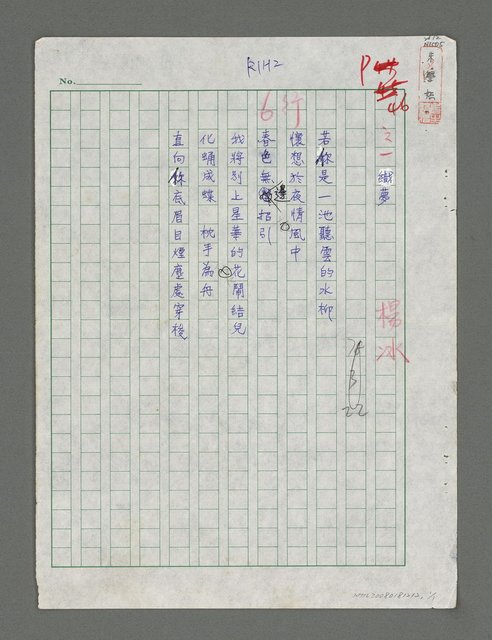 R1H2
No.
P 46
6行
之一 織夢
楊冰
若你是一池聽雲的水柳
懷想於夜情風中
春色無邊招引
我將別上星華的花鬧結兒
化蛹成蝶 枕手為舟
直向你底眉目煙塵處穿梭